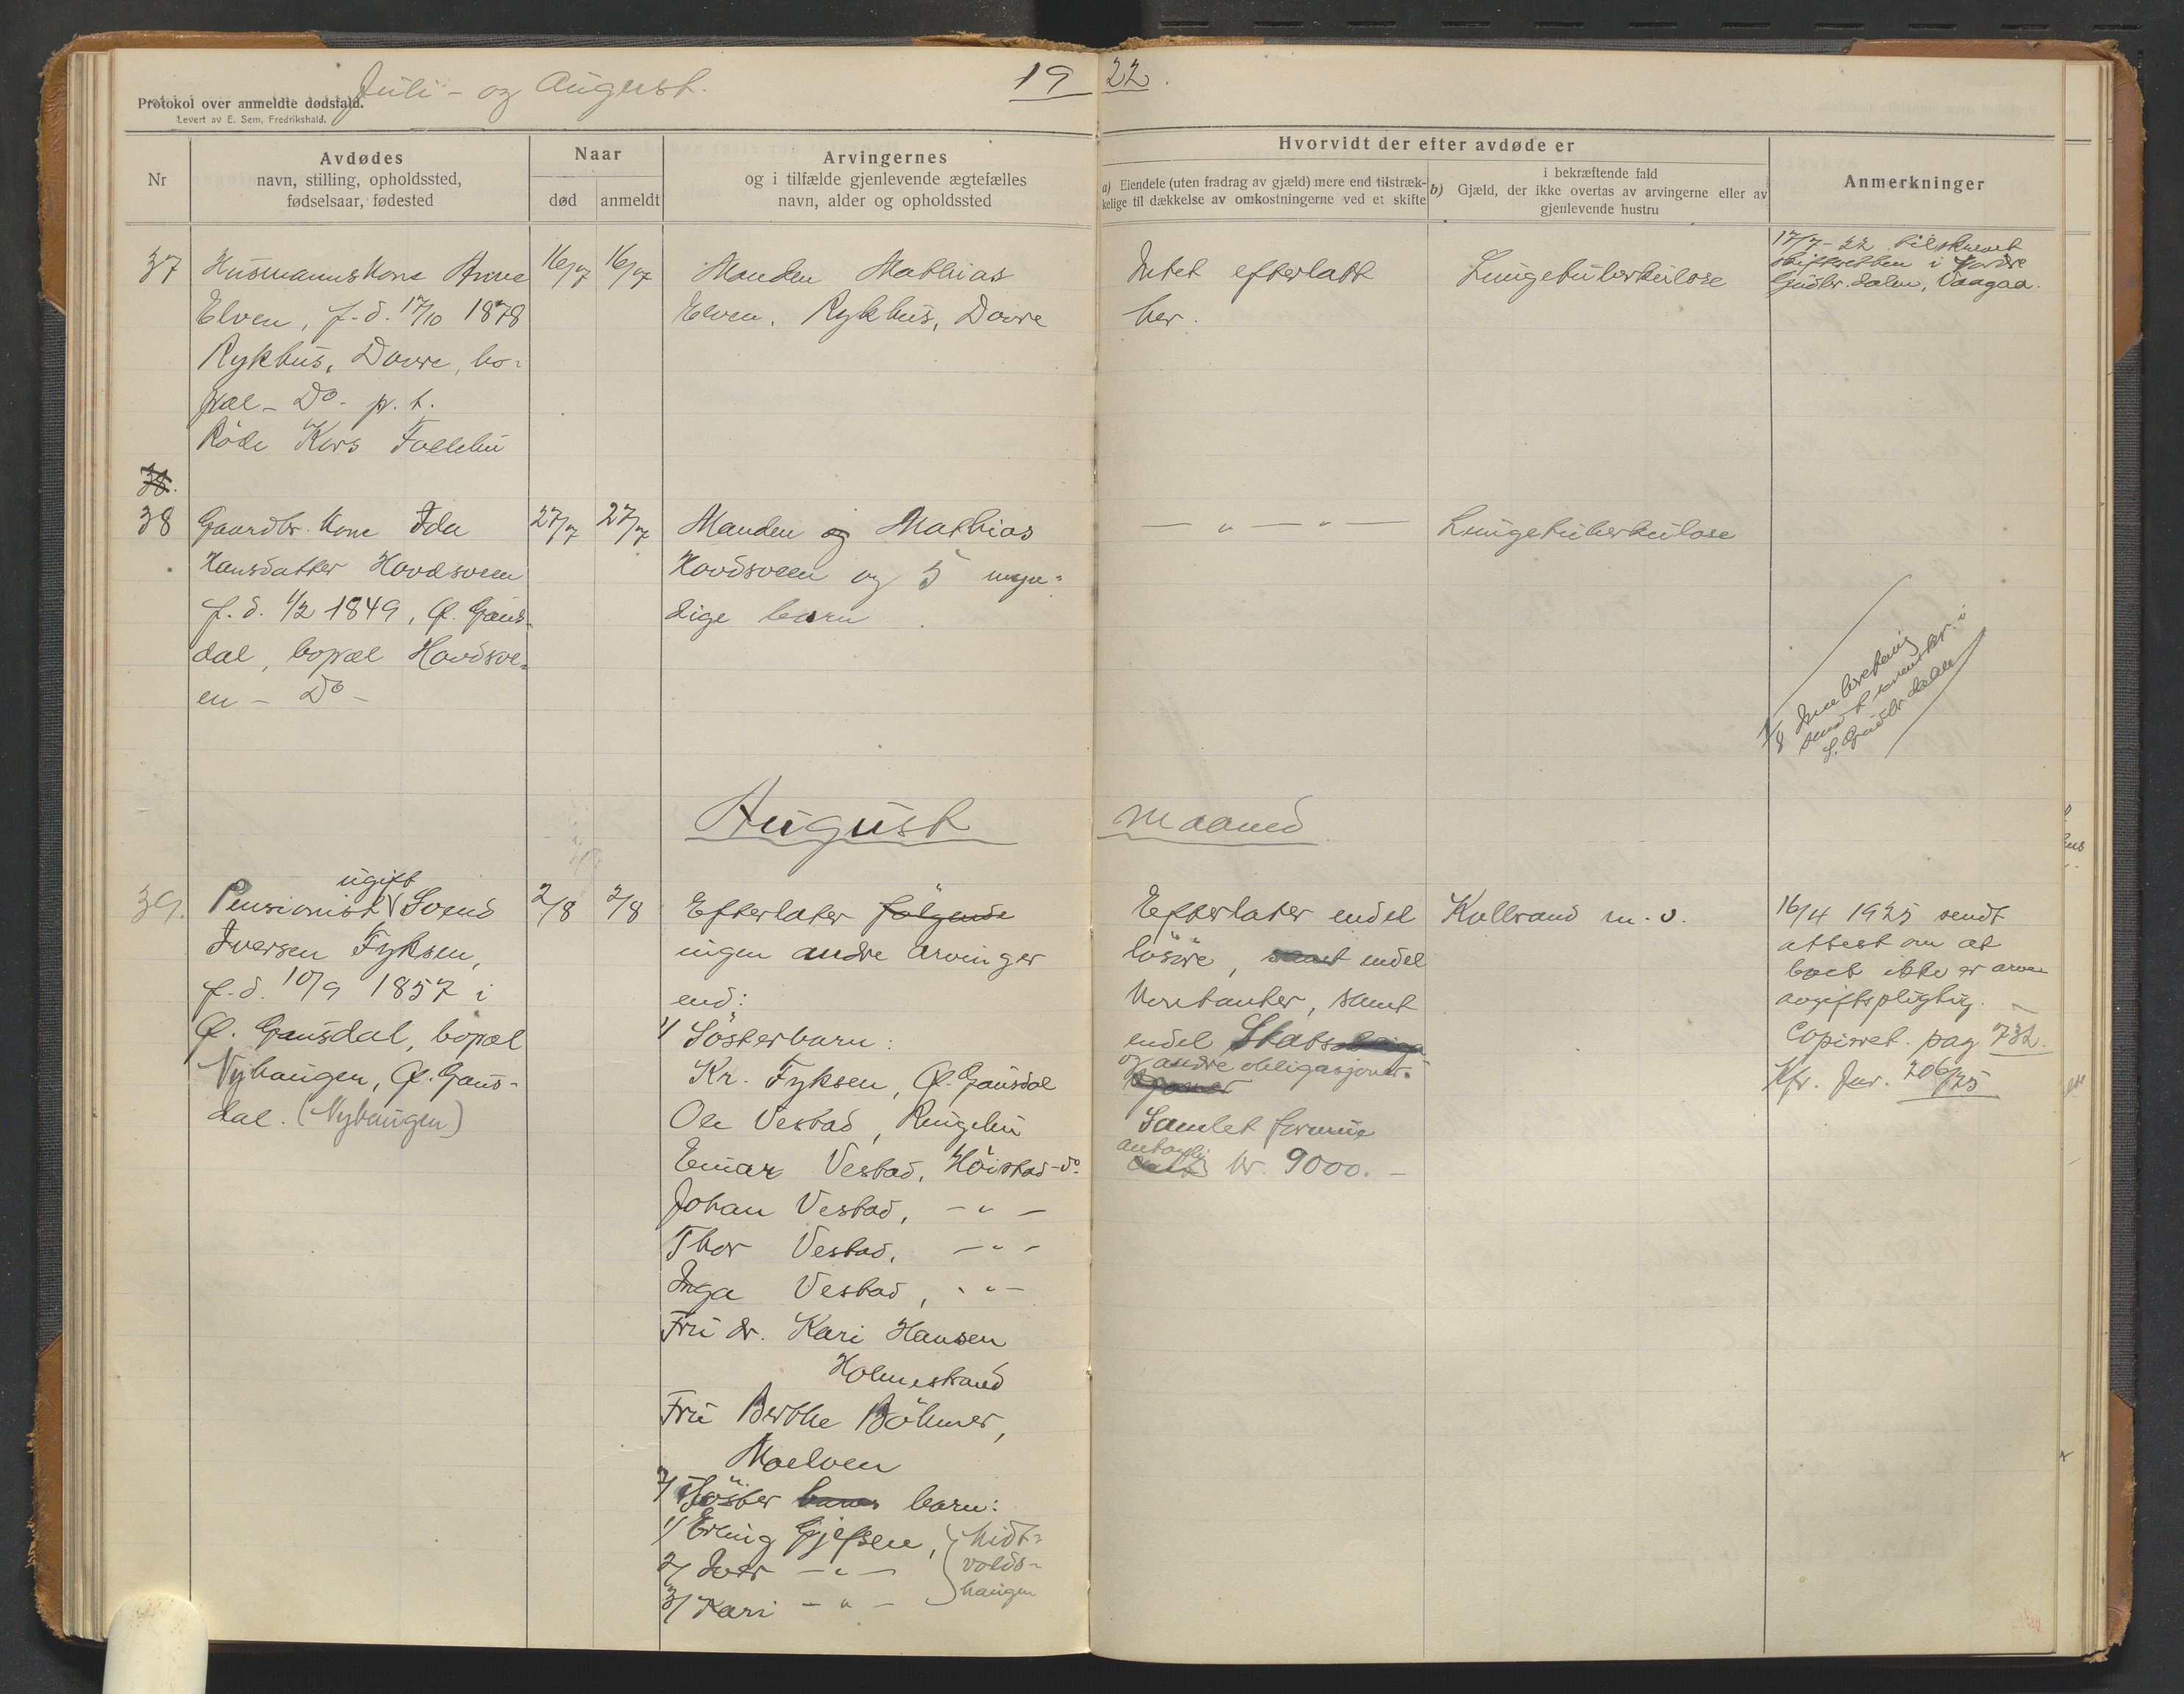 Juli - og August.
19 22.
Protokol over anmeldte dødsfald.
Levert av E. Sem, Fredrikshald.
Nr
Avdødes
navn, stilling, opholdssted,
fødselsaar, fødested
Naar
død
anmeldt
Arvingernes
og i tilfælde gjenlevende ægtefælles
navn, alder og opholdssted
Hvorvidt der efter avdøde er
a) Eiendele (uten fradrag av gjæld) mere end tilstræk-
kelige til dækkelse av omkostningerne ved et skifte
i bekræftende fald
b) Gjæld, der ikke overtas av arvingerne eller av
gjenlevende hustru
Anmerkninger
37
Husmannskone Anne
Elven, f.d. 17/10 1878
Rykhus, Dovre, bo=
pæl - Do - p.t.
Röde Kors Follebu
16/7
16/7
Manden Mathias
Elven, Rykhus, Dovre
Intet efterlatt
her.
Lungetuberkulose
17/7-22 tilskrevet
skifteretten i Nordre
Gudbr.dalen, Vaagaa.
38
Gaardbr. kone Ida
Hansdatter Hovdsveen
f.d. 1/2 1849, Ø. Gaus-
dal, bopæl Hovdsve-
en - Do -
27/7
27/7
Manden og Mathias
Hovdsveen og 5 myn=
dige barn.
— " — " —
Lungetuberkulose
1/8 Innberetning
sendt
S. Gudbr.dalen
August maaned
39.
ugift
Pensionist Svend
Iversen Fyksen,
f.d. 10/9 1857 i
Ø. Gausdal, bopæl
Nyhaugen, Ø. Gaus-
dal. (Nyhaugen)
2/8
2/8
Efterlater følgende
ingen andre arvinger
end:
1/ Sösterbarn:
Kr. Fyksen, Ø. Gausdal
Ole Vestad, Ringebu
Einar Vestad, Höistad - do
Johan Vestad, - " -
Thor Vestad, - " -
Inga Vestad, - " -
Fru dr. Kari Hansen
Holmestrand
Fru Berthe Böhmer,
Moelven
2/ Söster barns barn:
1/ Erling Gjefsen, Midt=
2/ Iver - " - volds-
3/ Kari - " - haugen
Efterlater endel
lösöre, samt endel
kontanter, samt
endel Stats
og andre obligasjoner.
Samlet formue
antagelig
kr. 9000.-
Kolbrand m.v.
16/4 1925 sendt
attest om at
boet ikke er arve
avgiftspligtig.
Copieret. pag 732.
Kfr. Jnr. 206/25